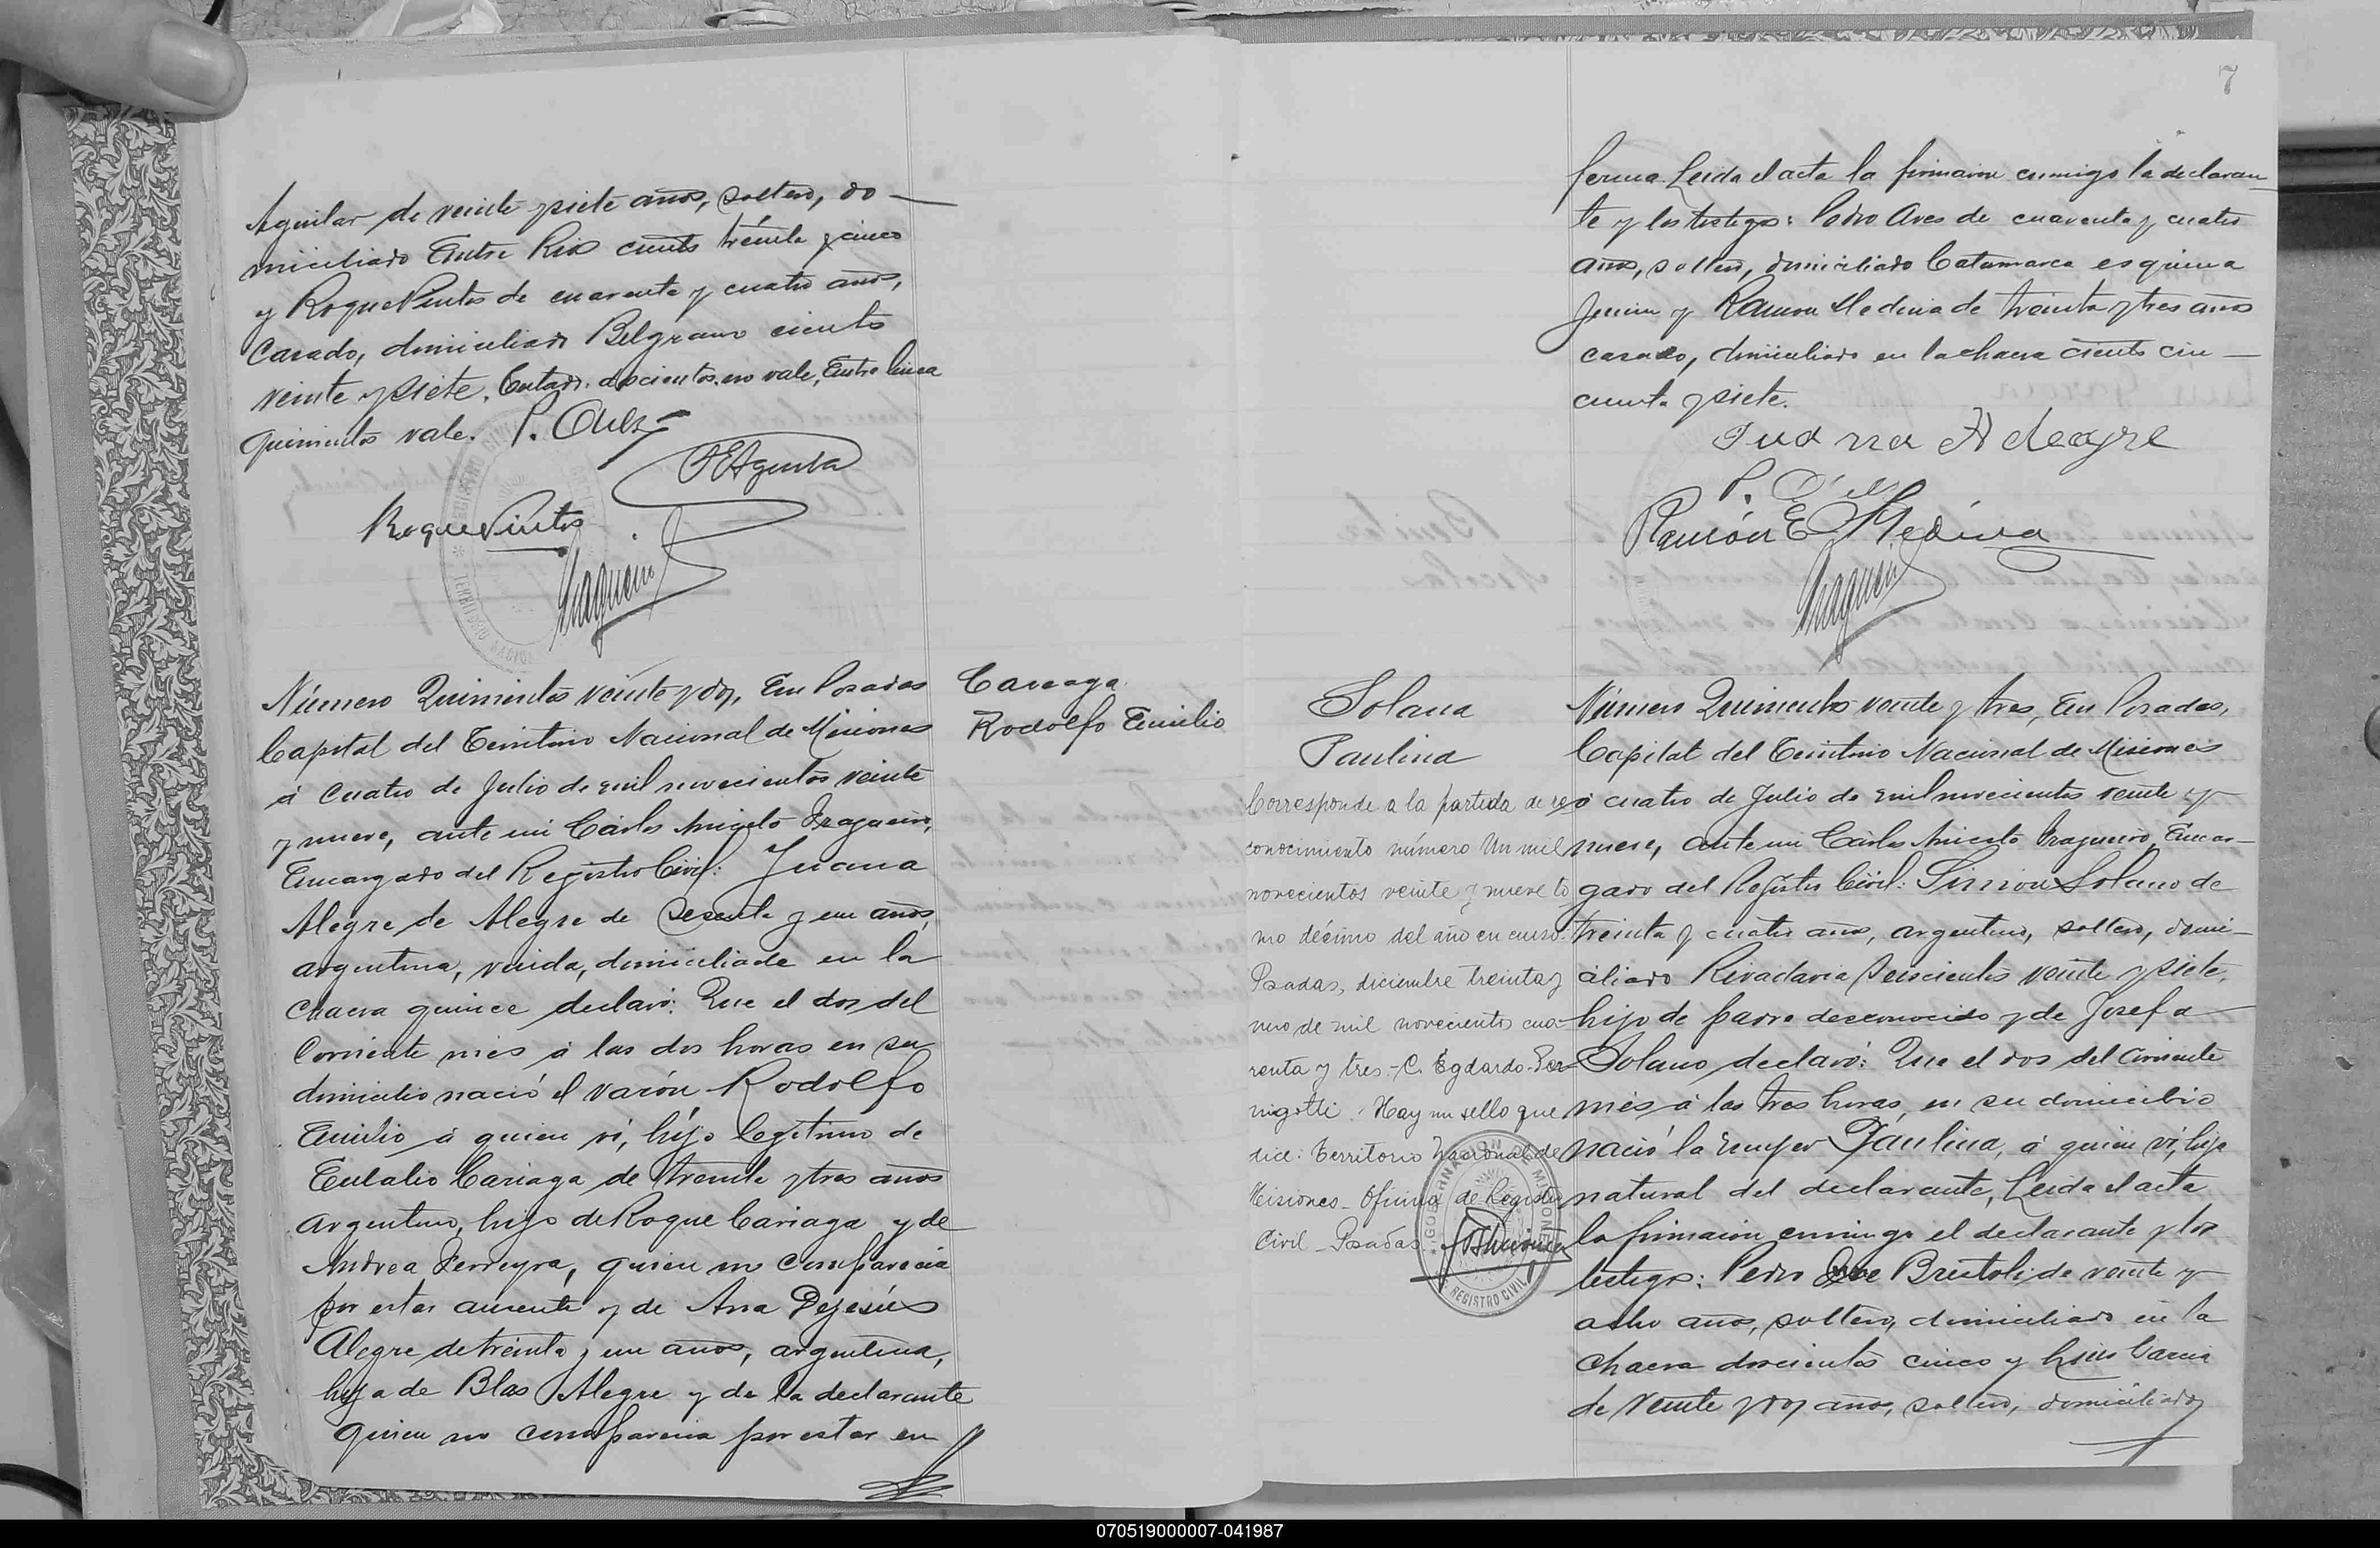 Aguilar de veinte y siete años, soltero, do-
miciliado Entre Rios ciento treinta y cinco
y Roque Pintos de cuarenta y cuatro años,
casado, domiciliado Belgrano ciento
veinte y siete. Entre linea
quinientos vale.
Roque Pintos
Número Quinientos veinte y dos, En Posadas
Capital del Territorio Nacional de Misiones
á cuatro de Julio de mil novecientos veinte
y nueve, ante mi Cárlos Aniceto Fragueiro,
Encargado del Registro Civil: Juana
Alegre de Alegre de sesenta y un años,
argentina, viuda, domiciliada en la
chacra quince declaró: Que el dos del
corriente mes á las dos horas en su
domicilio nació el varón Rodolfo
Emilio á quien ví, hijo legítimo de
Eulalio Cariaga de treinta y tres años
argentino, hijo de Roque Cariaga y de
Andrea Ferreyra, quien no comparecia
por estar ausente y de Ana Dejesús
Alegre de treinta y un años, argentina,
hija de Blas Alegre y de la declarante
quien no comparecia por estar en
Careaga
Rodolfo Emilio
7
ferma. Leida el acta la firmaron conmigo la declaran-
te y los testigos: Pedro de cuarenta y cuatro
años, soltero, domiciliado Catamarca esquina
Junin y Ramon Medina de treinta y tres años
casado, domiciliado en la chacra ciento cin-
cuenta y siete.
Juana Alegre
Ramón E Medina
Solana
Paulina
Corresponde a la partida de re
conocimiento número Un mil
novecientos veinte y nueve to
mo décimo del año en curso.
Posadas, diciembre treinta y
uno de mil novecientos cua-
renta y tres.- C. Egdardo
Hay un sello que
dice: Territorio Nacional de
Misiones - Oficina de Registro
Civil - Posadas
GOBERNACION DE MISIONES
REGISTRO CIVIL
Número Quinientos veinte y tres, En Posadas,
Capital del Territorio Nacional de Misiones
á cuatro de Julio de mil novecientos veinte y
nueve, ante mi Cárlos Aniceto Fragueiro, Encar-
gado del Registro Civil: Simon Solano de
treinta y cuatro años, argentino, soltero, domi-
ciliado Rivadavia seiscientos veinte y siete,
hijo de padre desconocido y de Josefa
Solano declaró: Que el dos del corriente
més á las tres horas, en su domicilio
nació la mujer Paulina, á quien ví, hija
natural del declarante, Leida el acta
la firmaron conmigo el declarante y los
testigos: Pedro de veinte y
ocho años, soltero, domiciliado en la
chacra doscientos cinco y Luis Garcia
de veinte y dos años, soltero, domiciliado
070519000007-041987